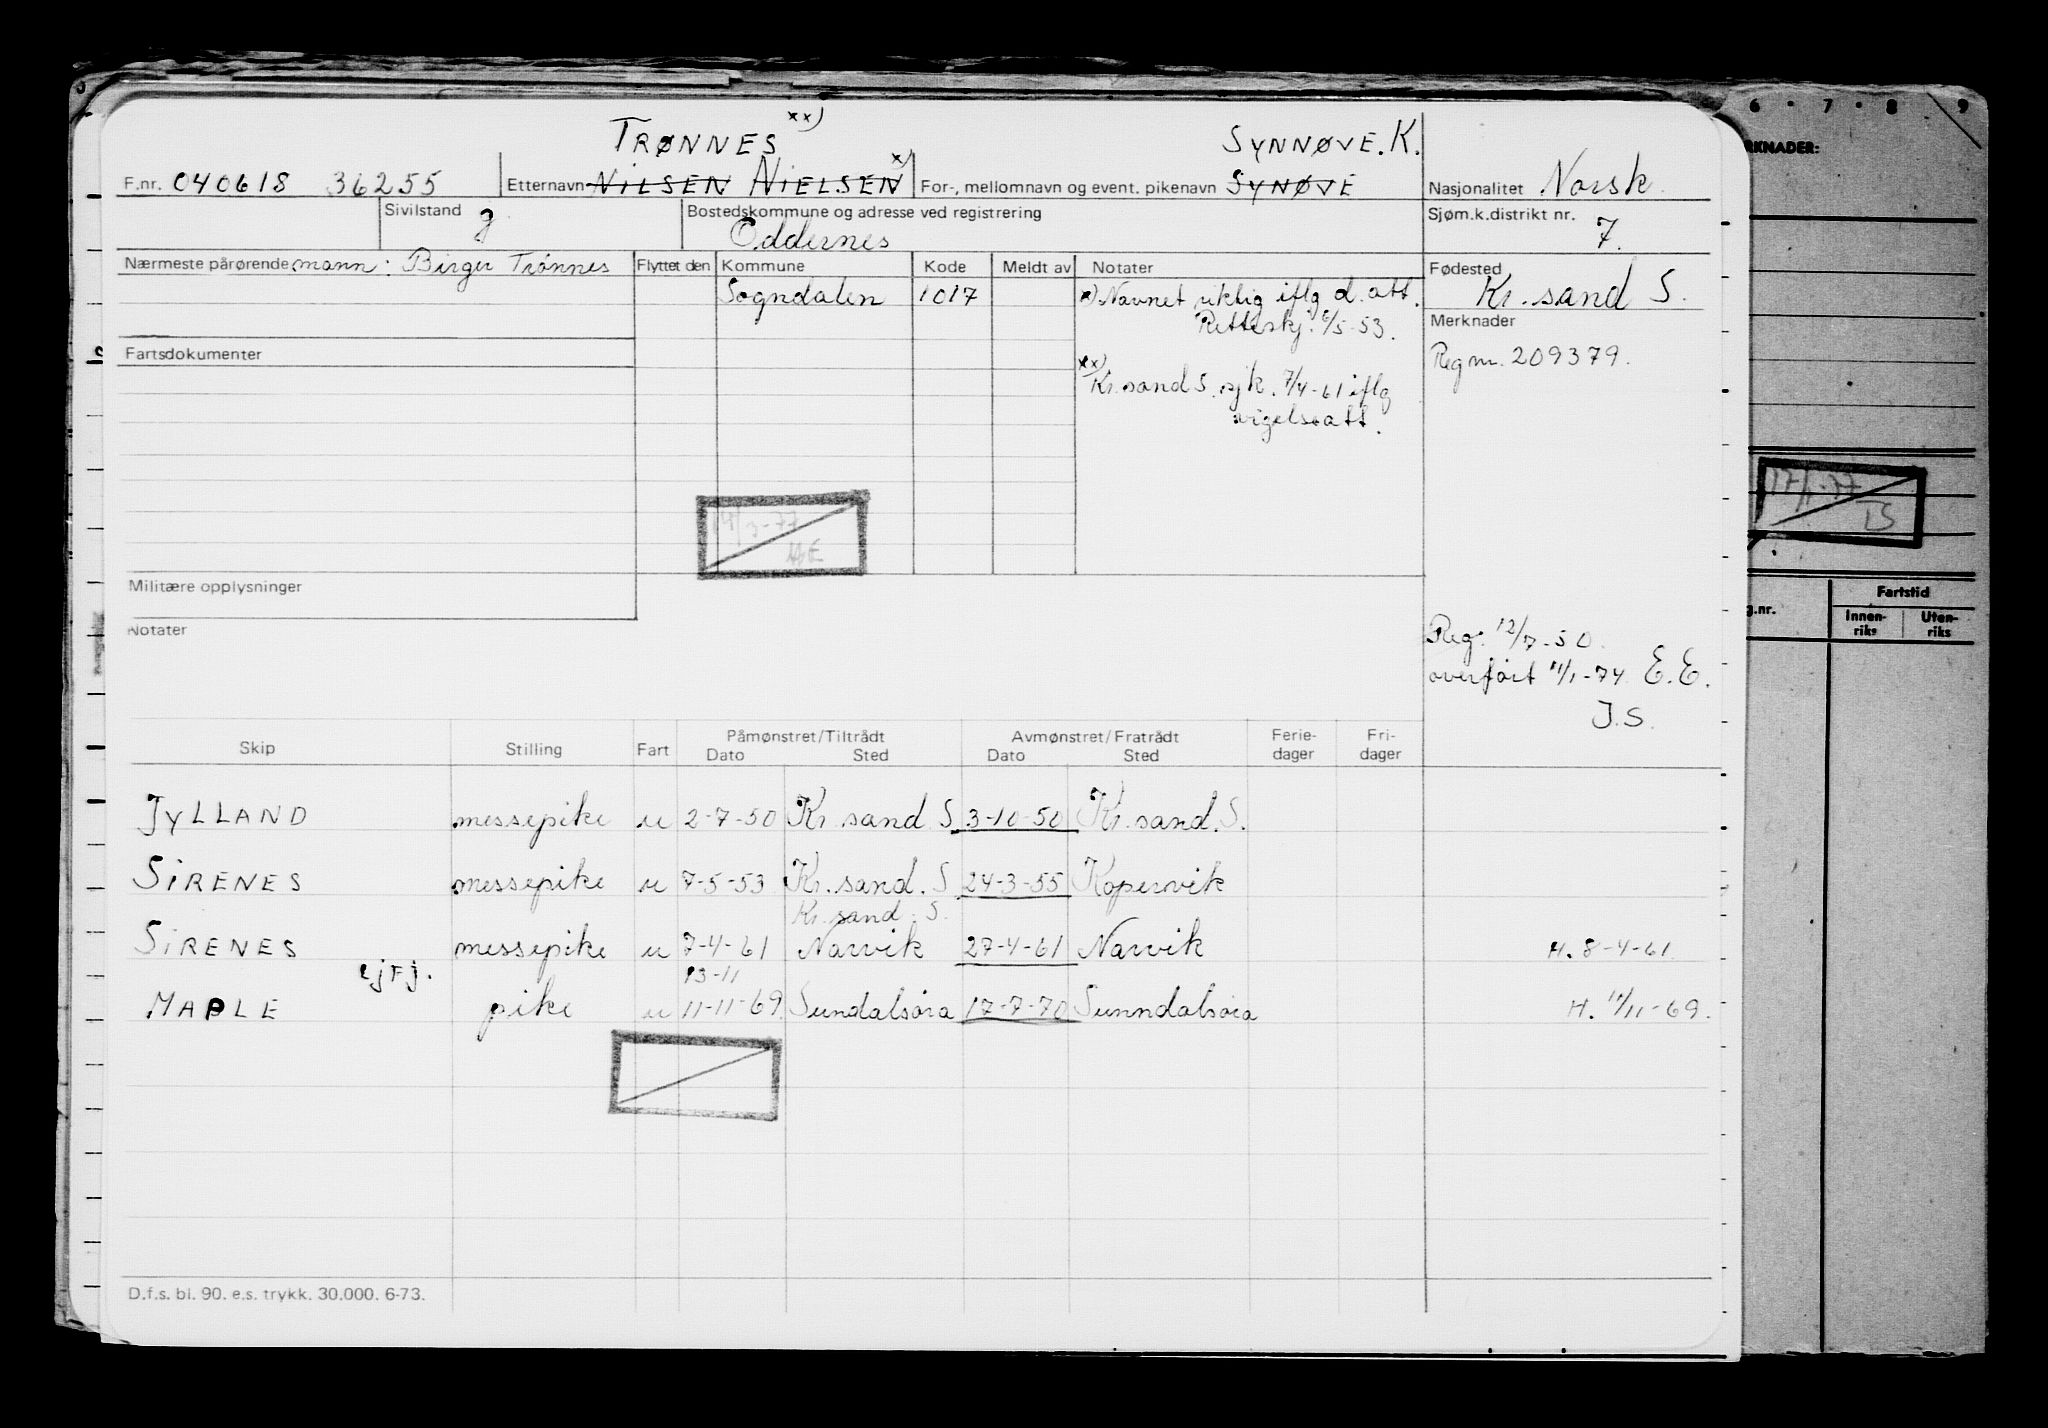 6 · 7 · 8 9
TRØNNES xx) SYNNØVE. K.
F.nr. 040618 36255 Etternavn NILSEN NIELSEN x) For-, mellomnavn og event. pikenavn SYNØVE Nasjonalitet Norsk.
RKNADER:
Sivilstand g. Bostedskommune og adresse ved registrering Oddernes Sjøm.k.distrikt nr. 7.
Nærmeste pårørende mann: Birger Trønnes Flyttet den Kommune Kode Meldt av Notater Fødested
Sogndalen 1017 x) Navnet riktig iflg d. att. Kr. sand S.
Retteskj. 6/5-53. Merknader
Fartsdokumenter Reg nr. 209379.
xx)
Kr. sand S. sjk. 7/4-61 iflg
vigelseatt.
17/1-77
LS
4/3-77
Militære opplysninger
g.nr. Fartstid
Innen-riks Uten-riks
Notater
Reg. 12/7-50.
overført 11/1-74 E.E.
J.S.
Skip Stilling Fart Påmønstret/Tiltrådt Avmønstret/Fratrådt Ferie-dager Fri-dager
Dato Sted Dato Sted
JYLLAND messepike u 2-7-50 Kr. sand S 3-10-50 Kr. sand. S.
SIRENES messepike u 7-5-53 Kr. sand. S 24-3-55 Kopervik
Kr. sand. S.
SIRENES messepike u 7-4-61 Narvik 27-4-61 Narvik H. 8-4-61
ejFj. 13-11
MAPLE pike u 11-11-69 Sundalsøra 17-7-70 Sunndalsøra H. 11/11-69.
D.f.s. bl. 90. e.s. trykk. 30.000. 6-73.